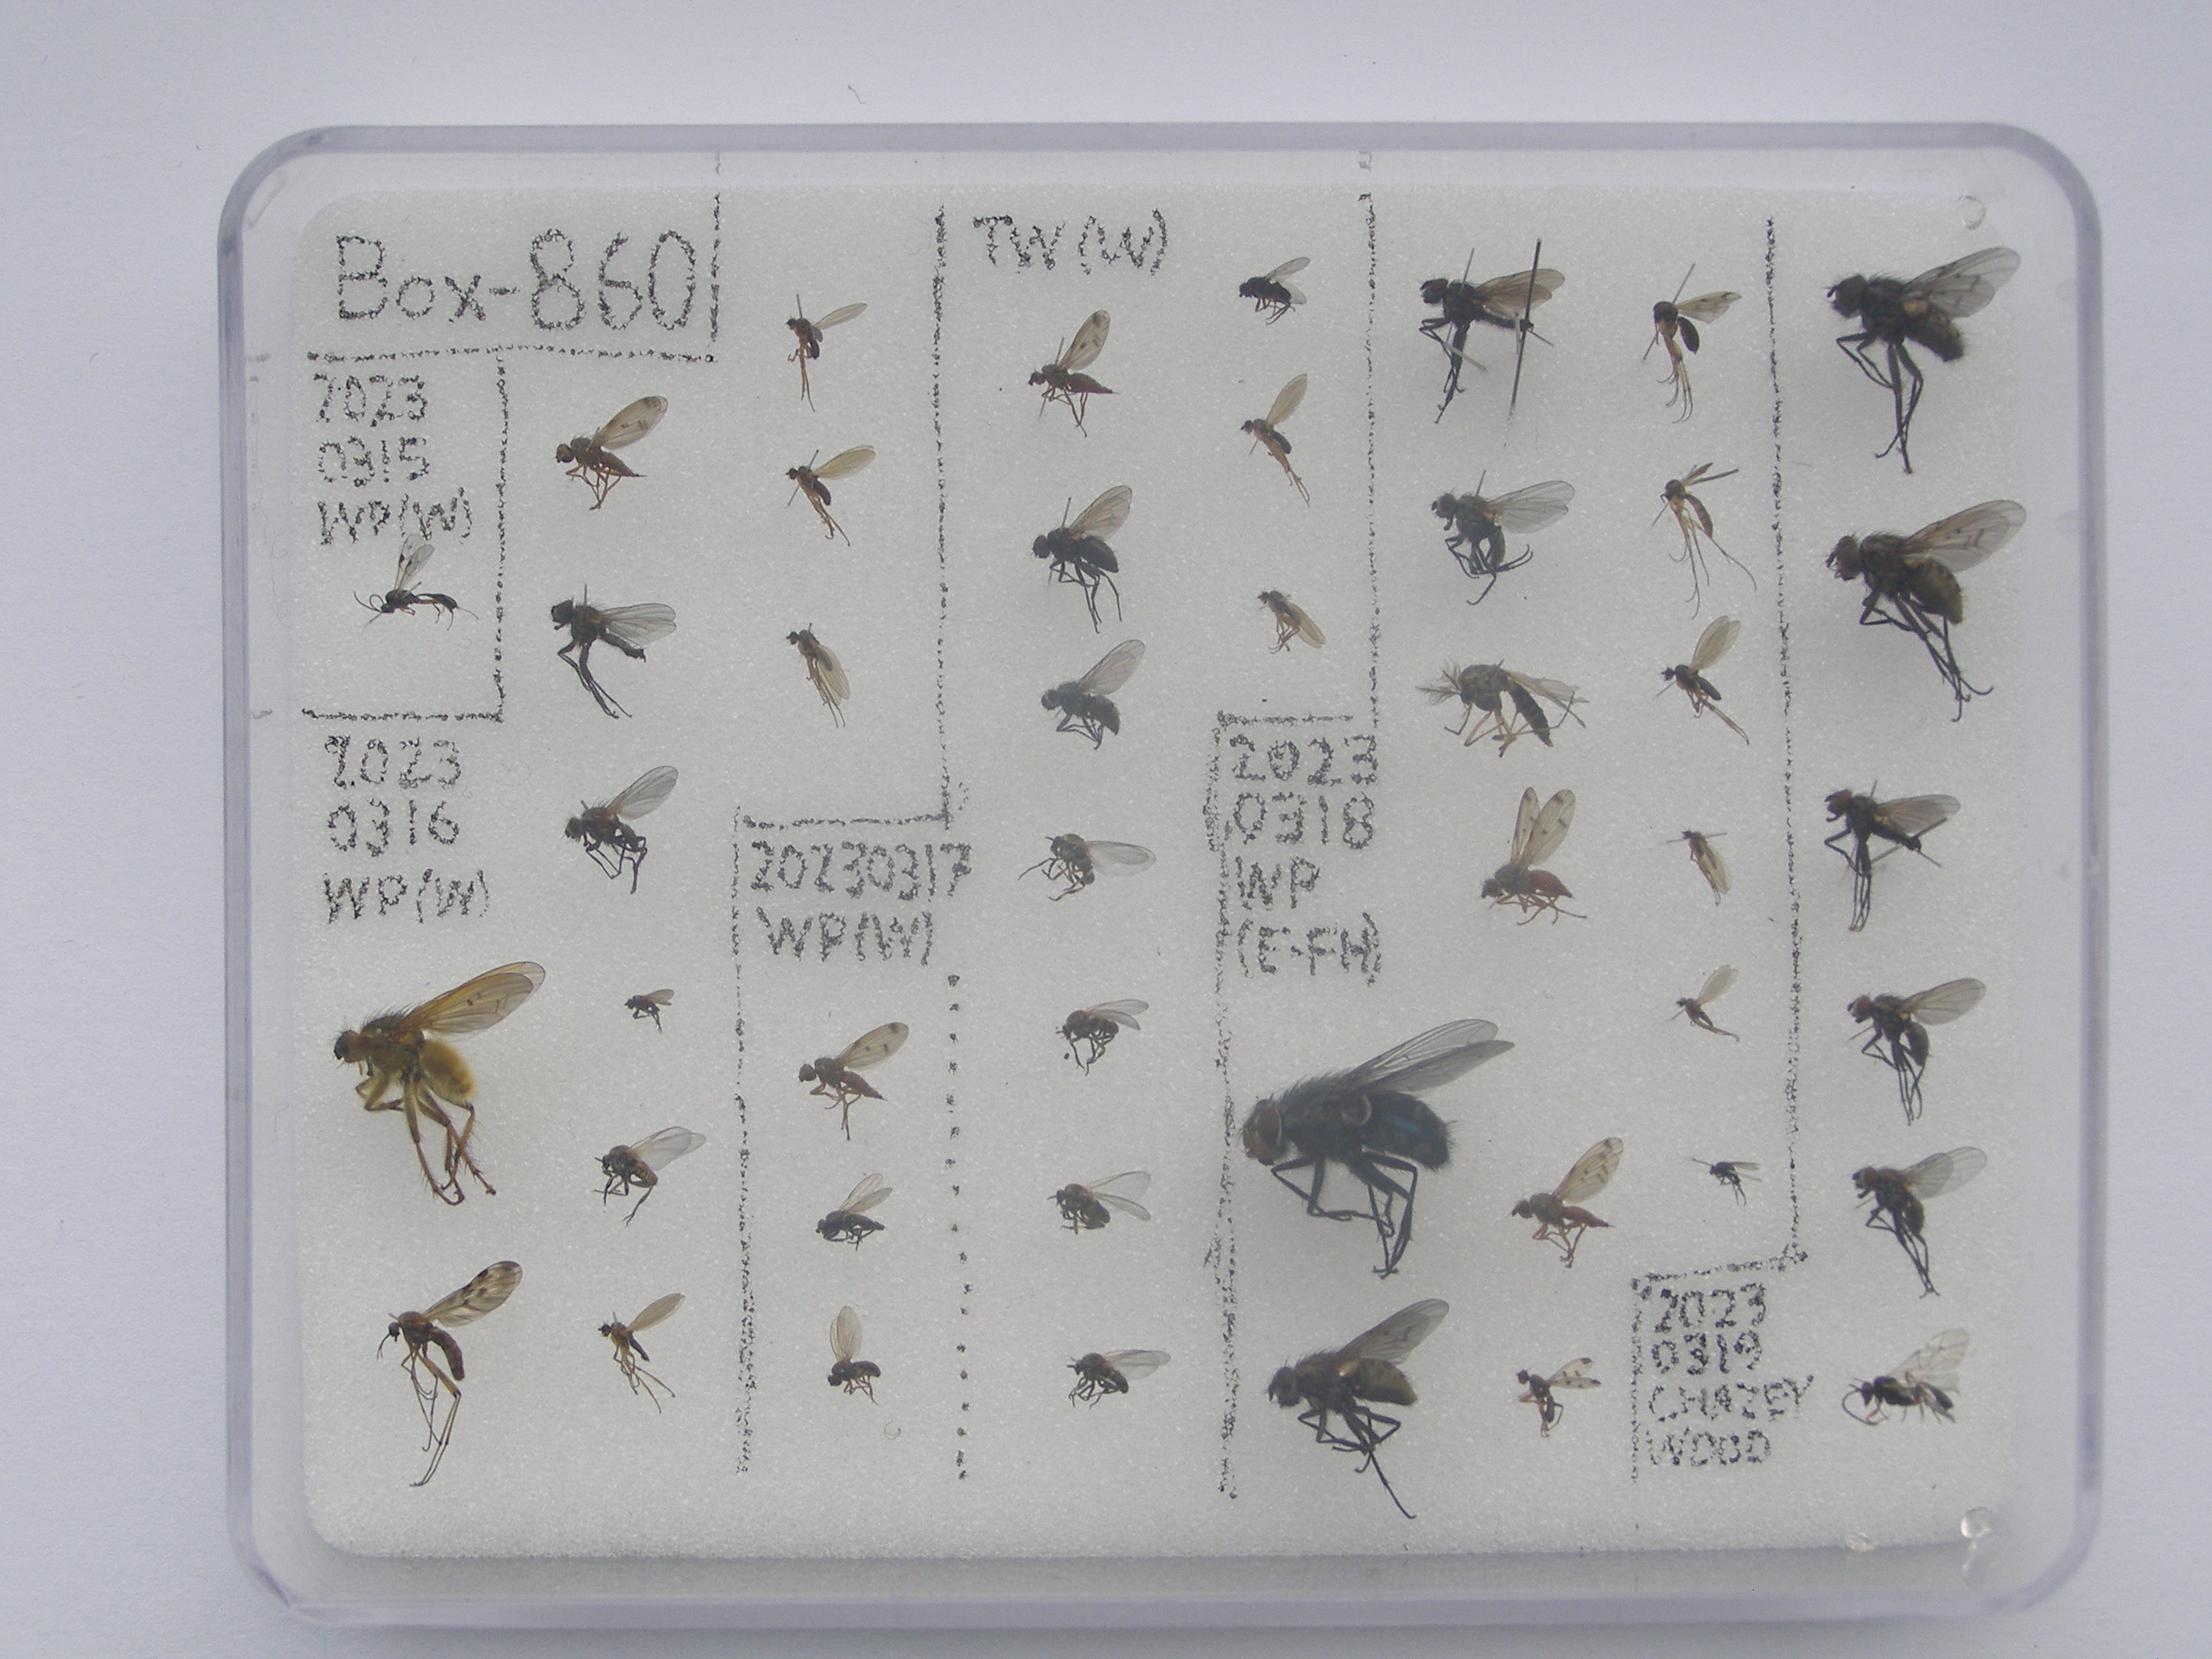 Box-860
2023
0315
WP(W)
2023
0316
WP(W)
20230317
WP(W)
TW(W)
2023
0318
WP
(E-FH)
2023
0319
CHAZEY
WOOD